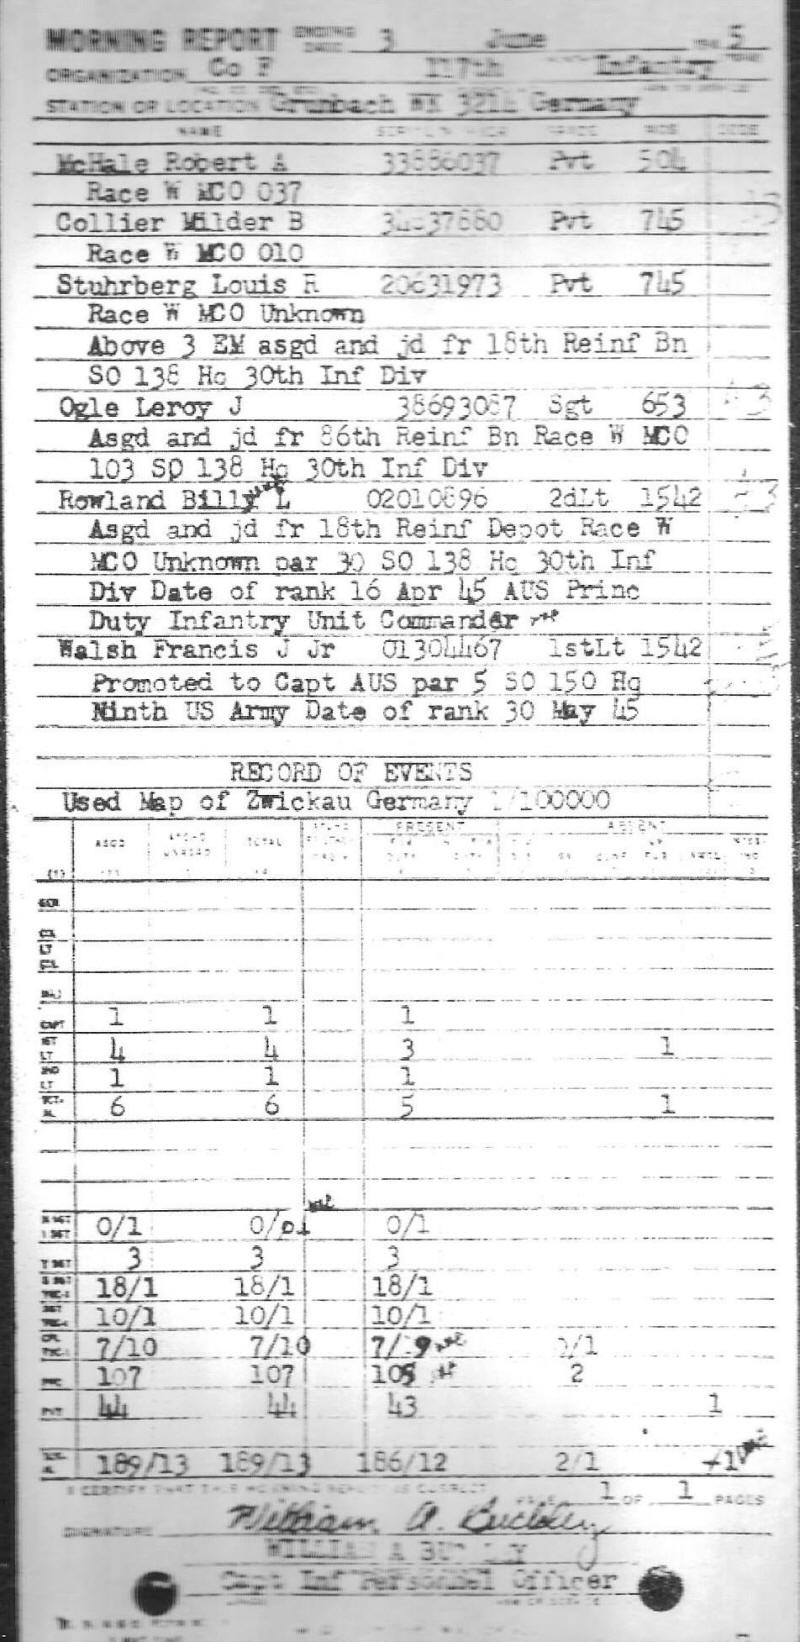 MORNING REPORT ENDING DATE 3 June 5
ORGANIZATION Co F 117th Infantry
STATION OR LOCATION Grunbach WK 3214 Germany
NAME SERIAL NUMBER GRADE MOS CODE
McHale Robert A 33886037 Pvt 504
Race W MCO 037
Collier Wilder B Pvt 745
Race W MCO 010
Stuhrberg Louis R 20631973 Pvt 745
Race W MCO Unknown
Above 3 EM asgd and jd fr 18th Reinf Bn
SO 138 Hq 30th Inf Div
Ogle Leroy J 38693087 Sgt 653
Asgd and jd fr 86th Reinf Bn Race W MCO
103 SO 138 Hq 30th Inf Div
Rowland Billy L 02010896 2dLt 1542
Asgd and jd fr 18th Reinf Depot Race W
MCO Unknown par 30 SO 138 Hq 30th Inf
Div Date of rank 16 Apr 45 AUS Princ
Duty Infantry Unit Commander
Walsh Francis J Jr 01304467 1stLt 1542
Promoted to Capt AUS par 5 SO 150 Hq
Ninth US Army Date of rank 30 May 45
RECORD OF EVENTS
Used Map of Zwickau Germany 1/100000
PRESENT ABSENT
ASGD TOTAL
COL
LT
COL
MAJ
CAPT 1 1 1
1ST LT 4 4 3 1
2ND LT 1 1 1
TOTAL 6 6 5 1
M SGT 1 SGT 0/1 0/01 0/1
T SGT 3 3 3
S SGT TEC-3 18/1 18/1 18/1
SGT TEC-4 10/1 10/1 10/1
CPL TEC-5 7/10 7/10 7/9 0/1
PFC 107 107 105 2
PVT 44 44 43 1
TOTAL 189/13 189/13 186/12 2/1 1
I CERTIFY THAT THIS MORNING REPORT IS CORRECT PAGE 1 OF 1 PAGES
SIGNATURE William A. Buckley
WILLIAM A BUCKLEY
Capt Inf Personnel Officer